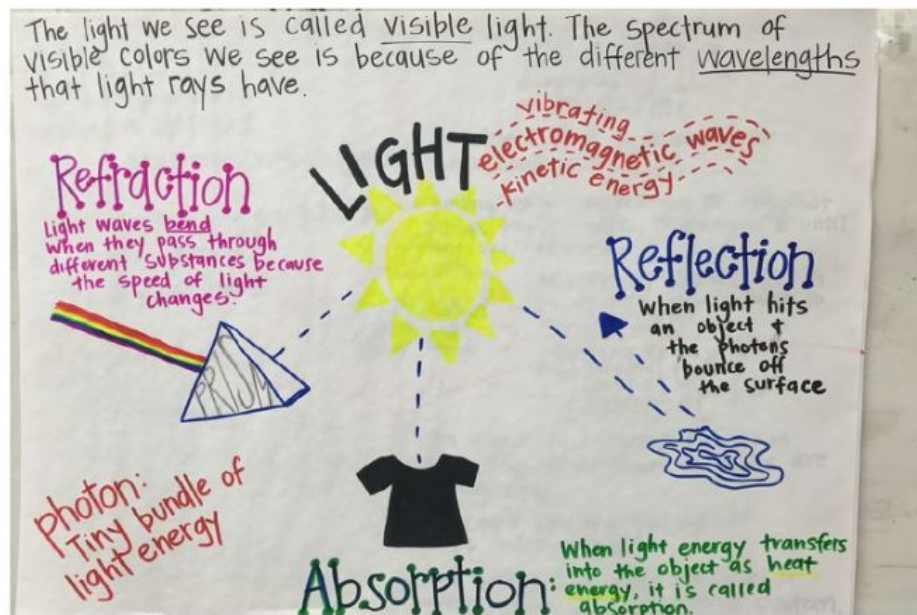 The light we see is called visible light. The spectrum of
visible colors we see is because of the different wavelengths
that light rays have.
LIGHT
vibrating
electromagnetic waves
kinetic energy
Refraction
Light waves bend
when they pass through
different substances because
the speed of light
changes.
PRISM
Reflection
When light hits
an object &
the photons
bounce off
the surface
photon:
Tiny bundle of
light energy
Absorption:
When light energy transfers
into the object as heat
energy, it is called
absorption.